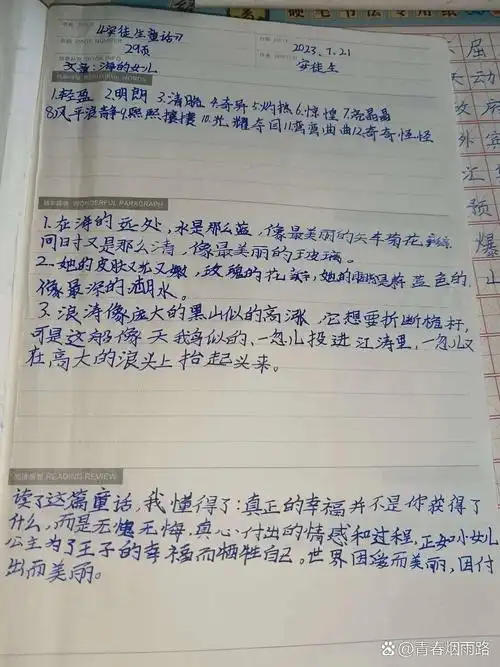 硬笔书法专用纸
《安徒生童话》
29页
2023.7.21
文章:海的女儿
安徒生
1.轻盈 2.明朗 3.清脆 4.奇异 5.灼热 6.惊惶 7.亮晶晶
8.风平浪静 9.熙熙攘攘 10.光耀夺目 11.弯弯曲曲 12.奇奇怪怪
精彩段落 WONDERFUL PARAGRAPH
1.在海的远处,水是那么蓝,像最美丽的矢车菊花瓣
同时又是那么清,像最美丽的玻璃。
2.她的皮肤又光又嫩,玫瑰的花瓣,她的眼睛是蔚蓝色的,
像最深的湖水。
3.浪涛像庞大的黑山似的高涨,它想要折断桅杆,
可是这船像天鹅似的、一忽儿投进江涛里,一忽儿又
在高大的浪头上抬起头来。
阅读感想 READING REVIEW
读了这篇童话,我懂得了:真正的幸福并不是你获得了
什么,而是无愧无悔,真心付出的情感和过程,正如小女儿
公主为了王子的幸福而牺牲自己。世界因爱而美丽,因付
出而美丽。
屈
天动
政府
外宾
汇
预
爆
山
@青春烟雨路